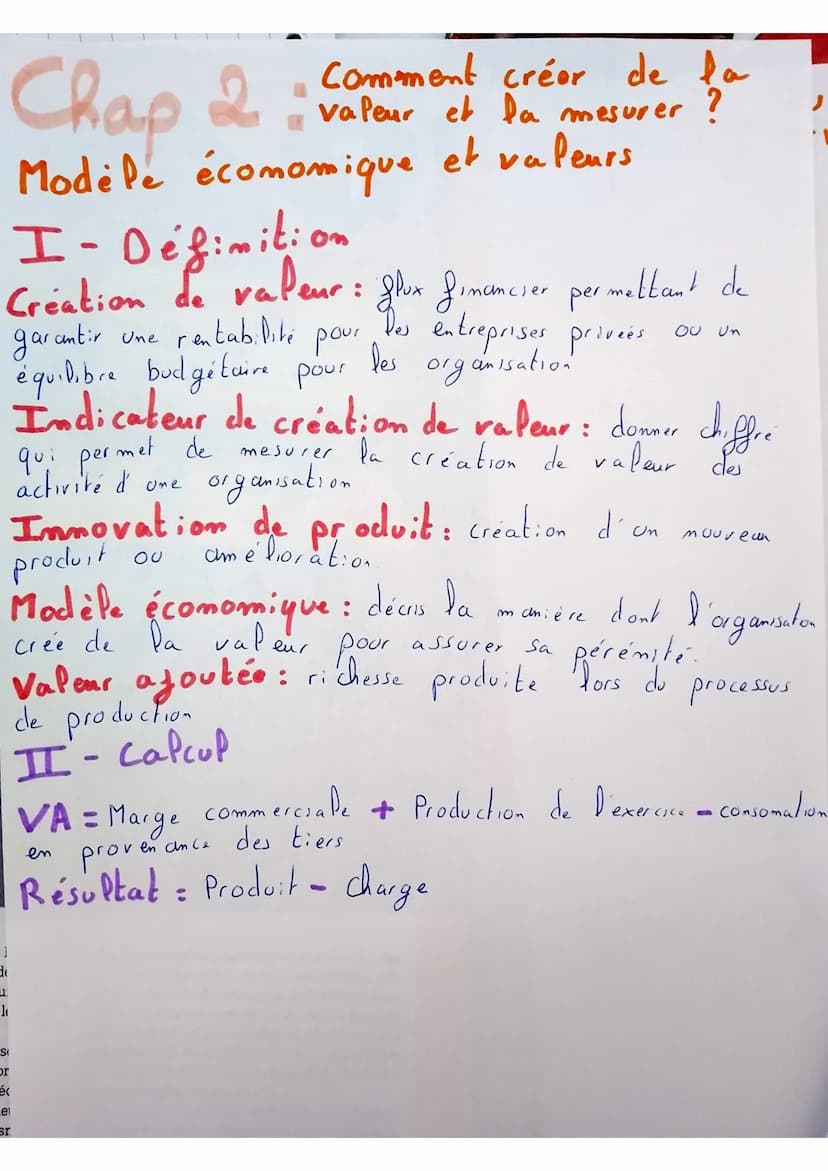 Chap 2 : Comment créer de la
valeur et la mesurer ?
Modèle économique et valeurs
I - Définition
Création de valeur : flux financier permettant de
garantir une rentabilité pour les entreprises privées ou un
équilibre budgétaire pour les organisation
Indicateur de création de valeur : donner chiffré
qui permet de mesurer la création de valeur des
activité d'une organisation
Innovation de produit : création d'un nouveau
produit ou amélioration
Modèle économique : décris la manière dont l'organisation
crée de la valeur pour assurer sa pérénité.
Valeur ajoutée : richesse produite lors du processus
de production
II - Calcul
VA = Marge commerciale + Production de l'exercice - consomation
en provenance des tiers
Résultat = Produit - Charge